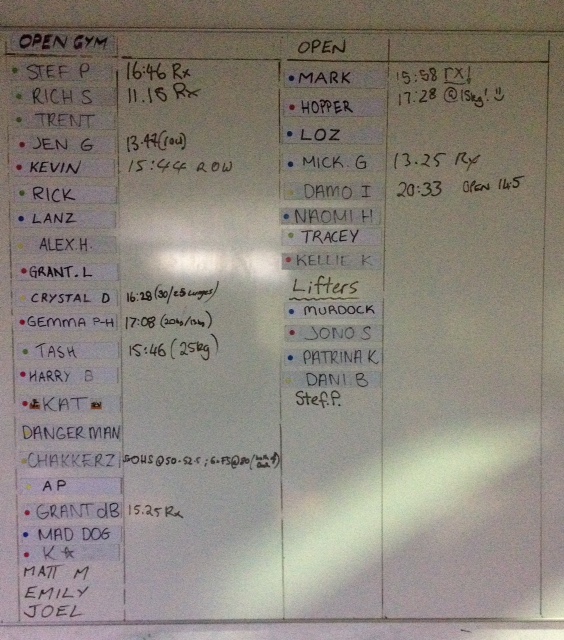 OPEN GYM
STEF P 16:46 Rx
RICH S 11.18 Rx
TRENT
JEN G 13.47 (row)
KEVIN 15:44 ROW
RICK
LANZ
ALEX.H.
GRANT.L
CRYSTAL D 16:28 (30/25 lunges)
GEMMA P-H 17:08 (20kg/15kg)
TASH 15:46 (25kg)
HARRY B
KAT
DANGERMAN
CHAKKERZ 5OHS@50-52.5; 6-FS@80
AP
GRANT dB 15.25 Rx
MAD DOG
K
MATT M
EMILY
JOEL
OPEN
MARK 15:58 rx!
HOPPER 17:28 @15kg!
LOZ
MICK. G 13.25 Rx
DAMO I 20:33 OPEN 14.5
NAOMI H
TRACEY
KELLIE K
Lifters
MURDOCK
JONO S
PATRINA K
DANI B
Stef.P.